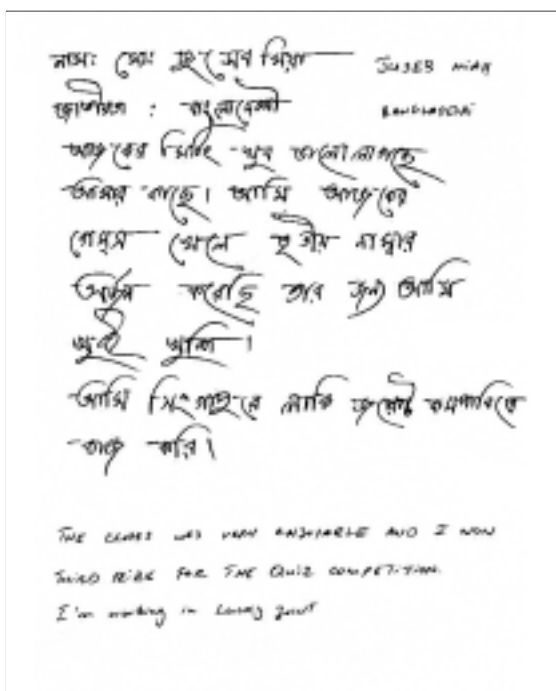 নাম: মোঃ জুসেব মিয়া JUSEB MIAH
জাতীয়তা : বাংলাদেশী BANGLADESHI
আজকের মিটিং খুব ভালো লাগছে
আমার কাছে। আমি আজকের
গেমস খেলে তৃতীয় নাম্বার
অর্জন করেছি তার জন্য আমি
খুবই খুশি।
আমি সিংগাপুরে লাকি জয়েন্ট কোম্পানিতে
কাজ করি।
THE CLASS WAS VERY ENJOYABLE AND I WON
THIRD PRIZE FOR THE QUIZ COMPETITION.
I'm working in Lucky Joint